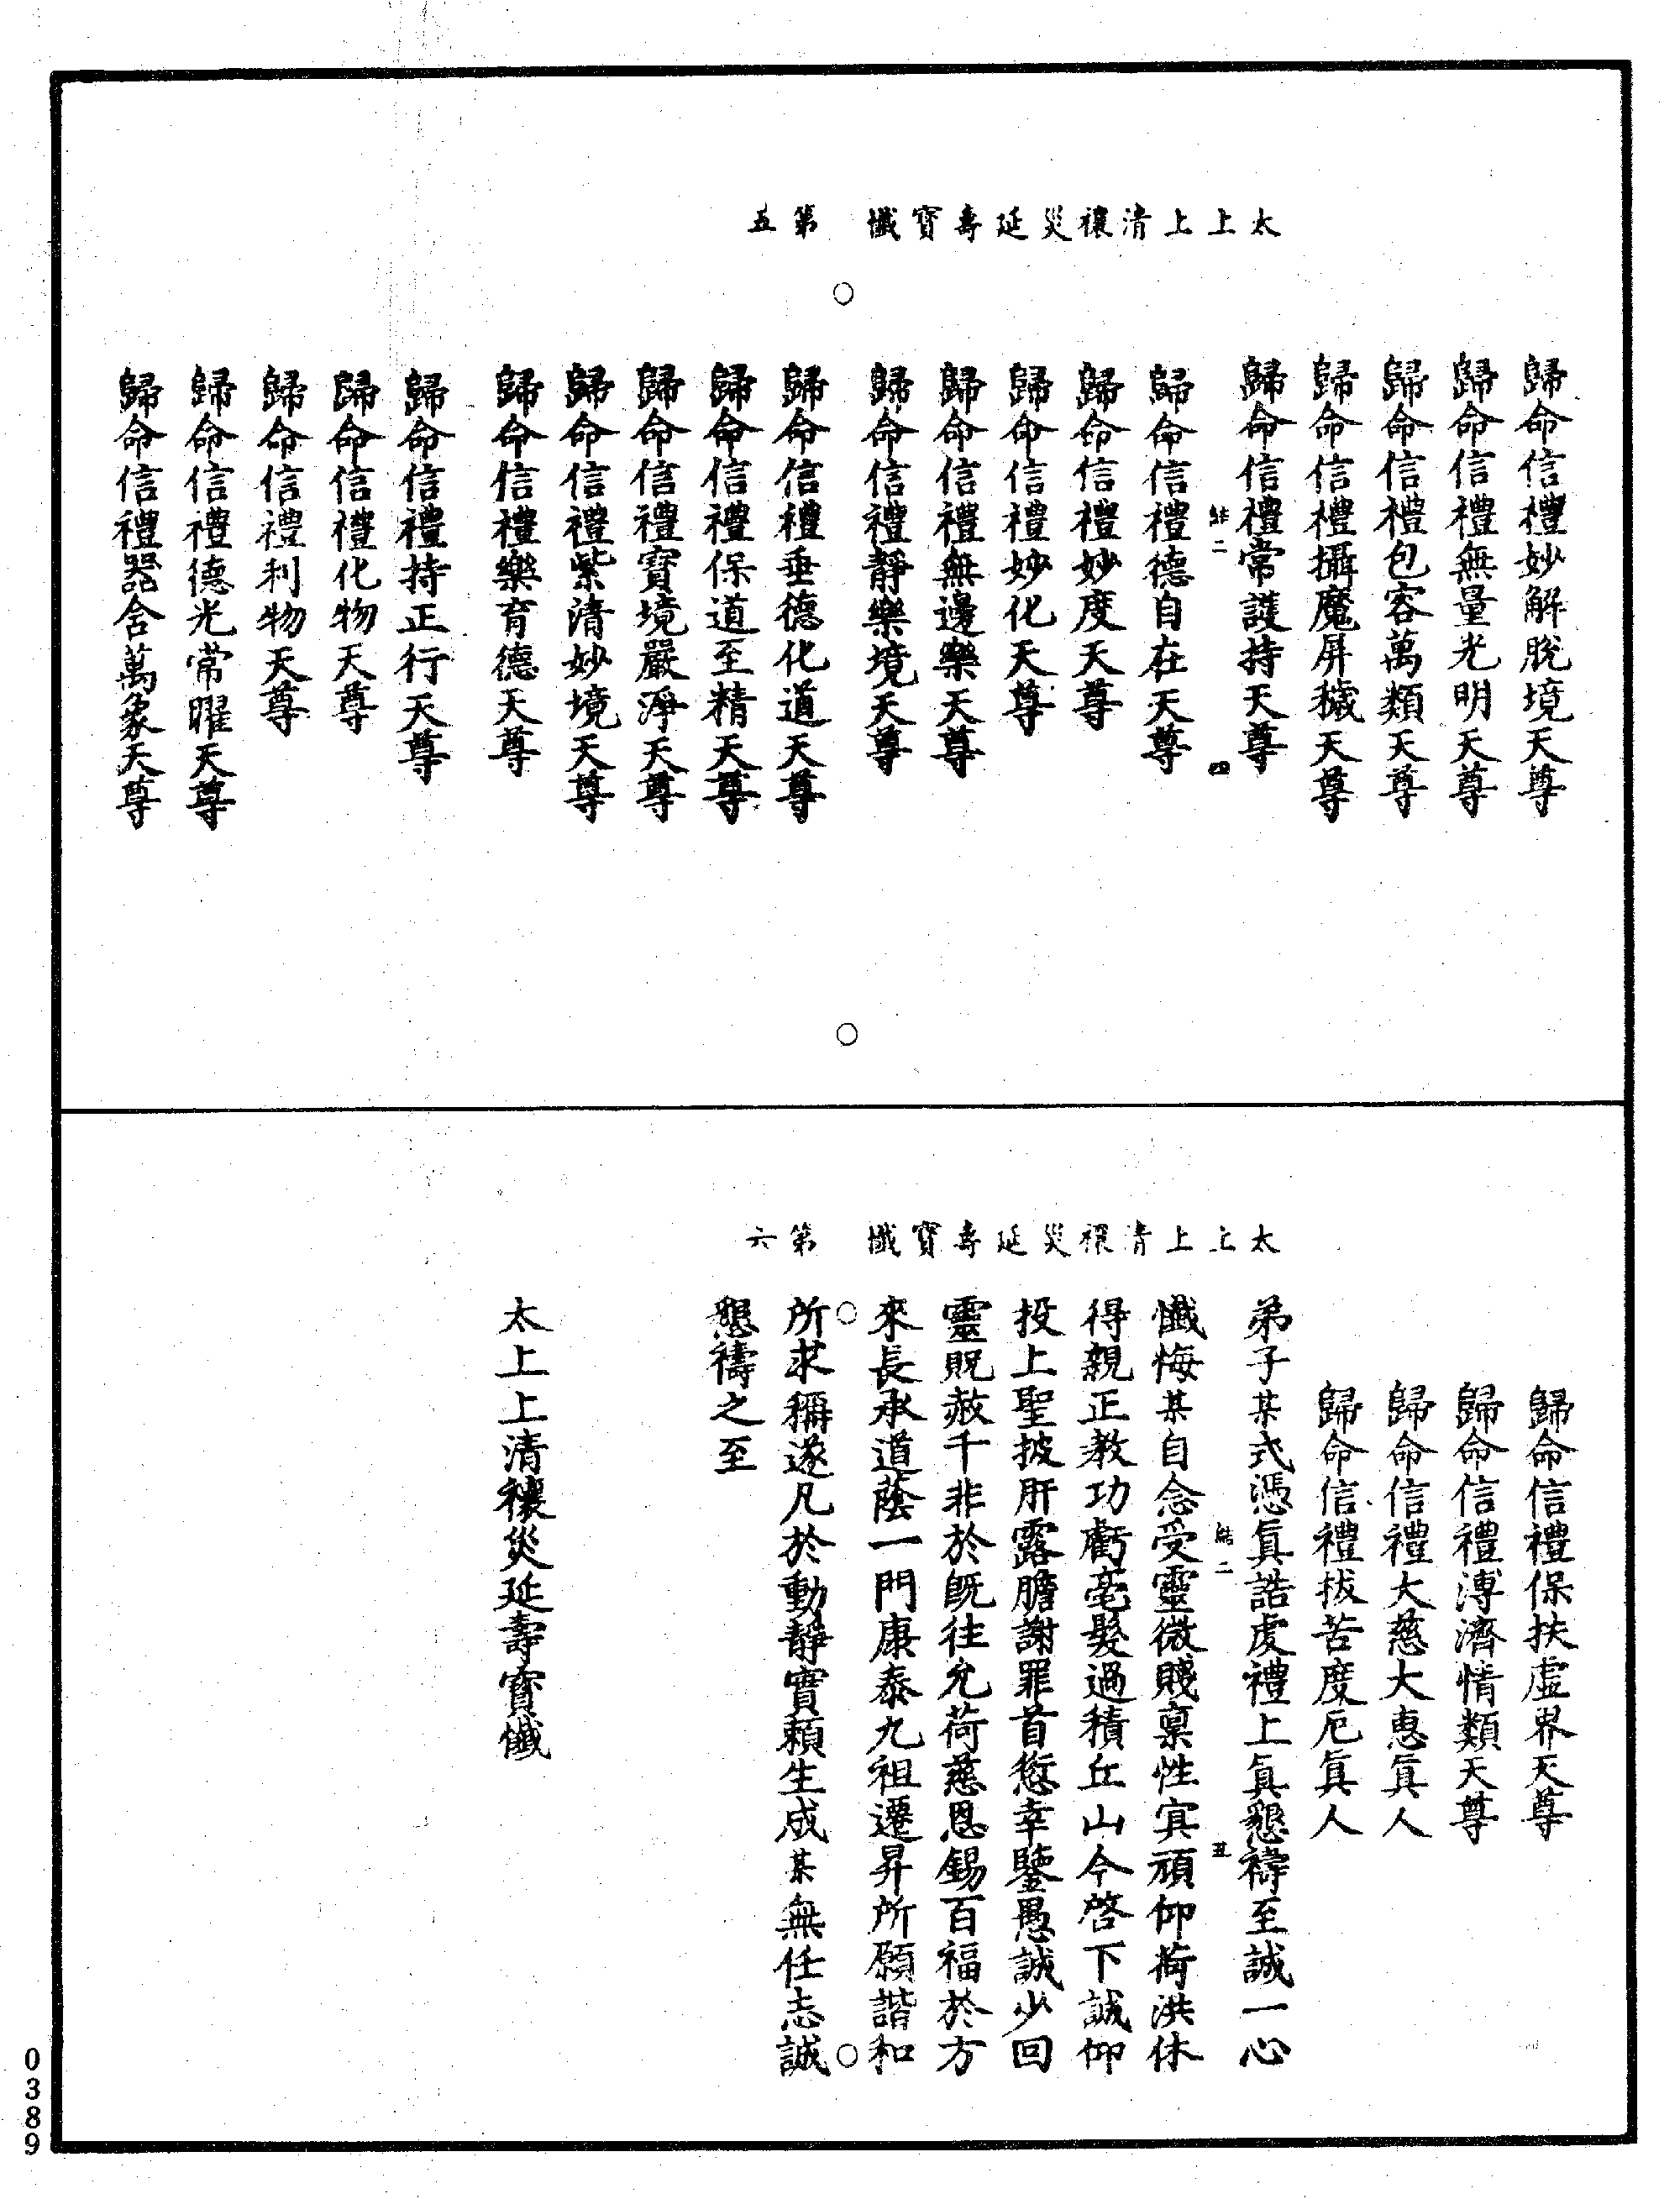 太上上清禳災延壽寶懺　第五
歸命信禮妙解脫境天尊
歸命信禮無量光明天尊
歸命信禮包容萬類天尊
歸命信禮攝魔屏穢天尊
歸命信禮常護持天尊
二　四
歸命信禮德自在天尊
歸命信禮妙度天尊
歸命信禮妙化天尊
歸命信禮無邊樂天尊
歸命信禮靜樂境天尊
歸命信禮垂德化道天尊
歸命信禮保道至精天尊
歸命信禮寶境嚴淨天尊
歸命信禮紫清妙境天尊
歸命信禮樂育德天尊
歸命信禮持正行天尊
歸命信禮化物天尊
歸命信禮利物天尊
歸命信禮德光常曜天尊
歸命信禮器含萬象天尊
太上上清禳災延壽寶懺　第六
歸命信禮保扶虛界天尊
歸命信禮溥濟情類天尊
歸命信禮大慈大惠真人
歸命信禮拔苦度厄真人
弟子某式憑真誥虔禮上真懇禱至誠一心
二　五
懺悔某自念受靈微賤稟性冥頑仰荷洪休
得親正教功虧毫髮過積丘山今啓下誠仰
投上聖披肝露膽謝罪首愆幸鑒愚誠少回
靈貺赦千非於既往允荷慈恩錫百福於方
來長承道蔭一門康泰九祖遷昇所願諧和
所求稱遂凡於動靜實賴生成某無任志誠
懇禱之至
太上上清禳災延壽寶懺
0389